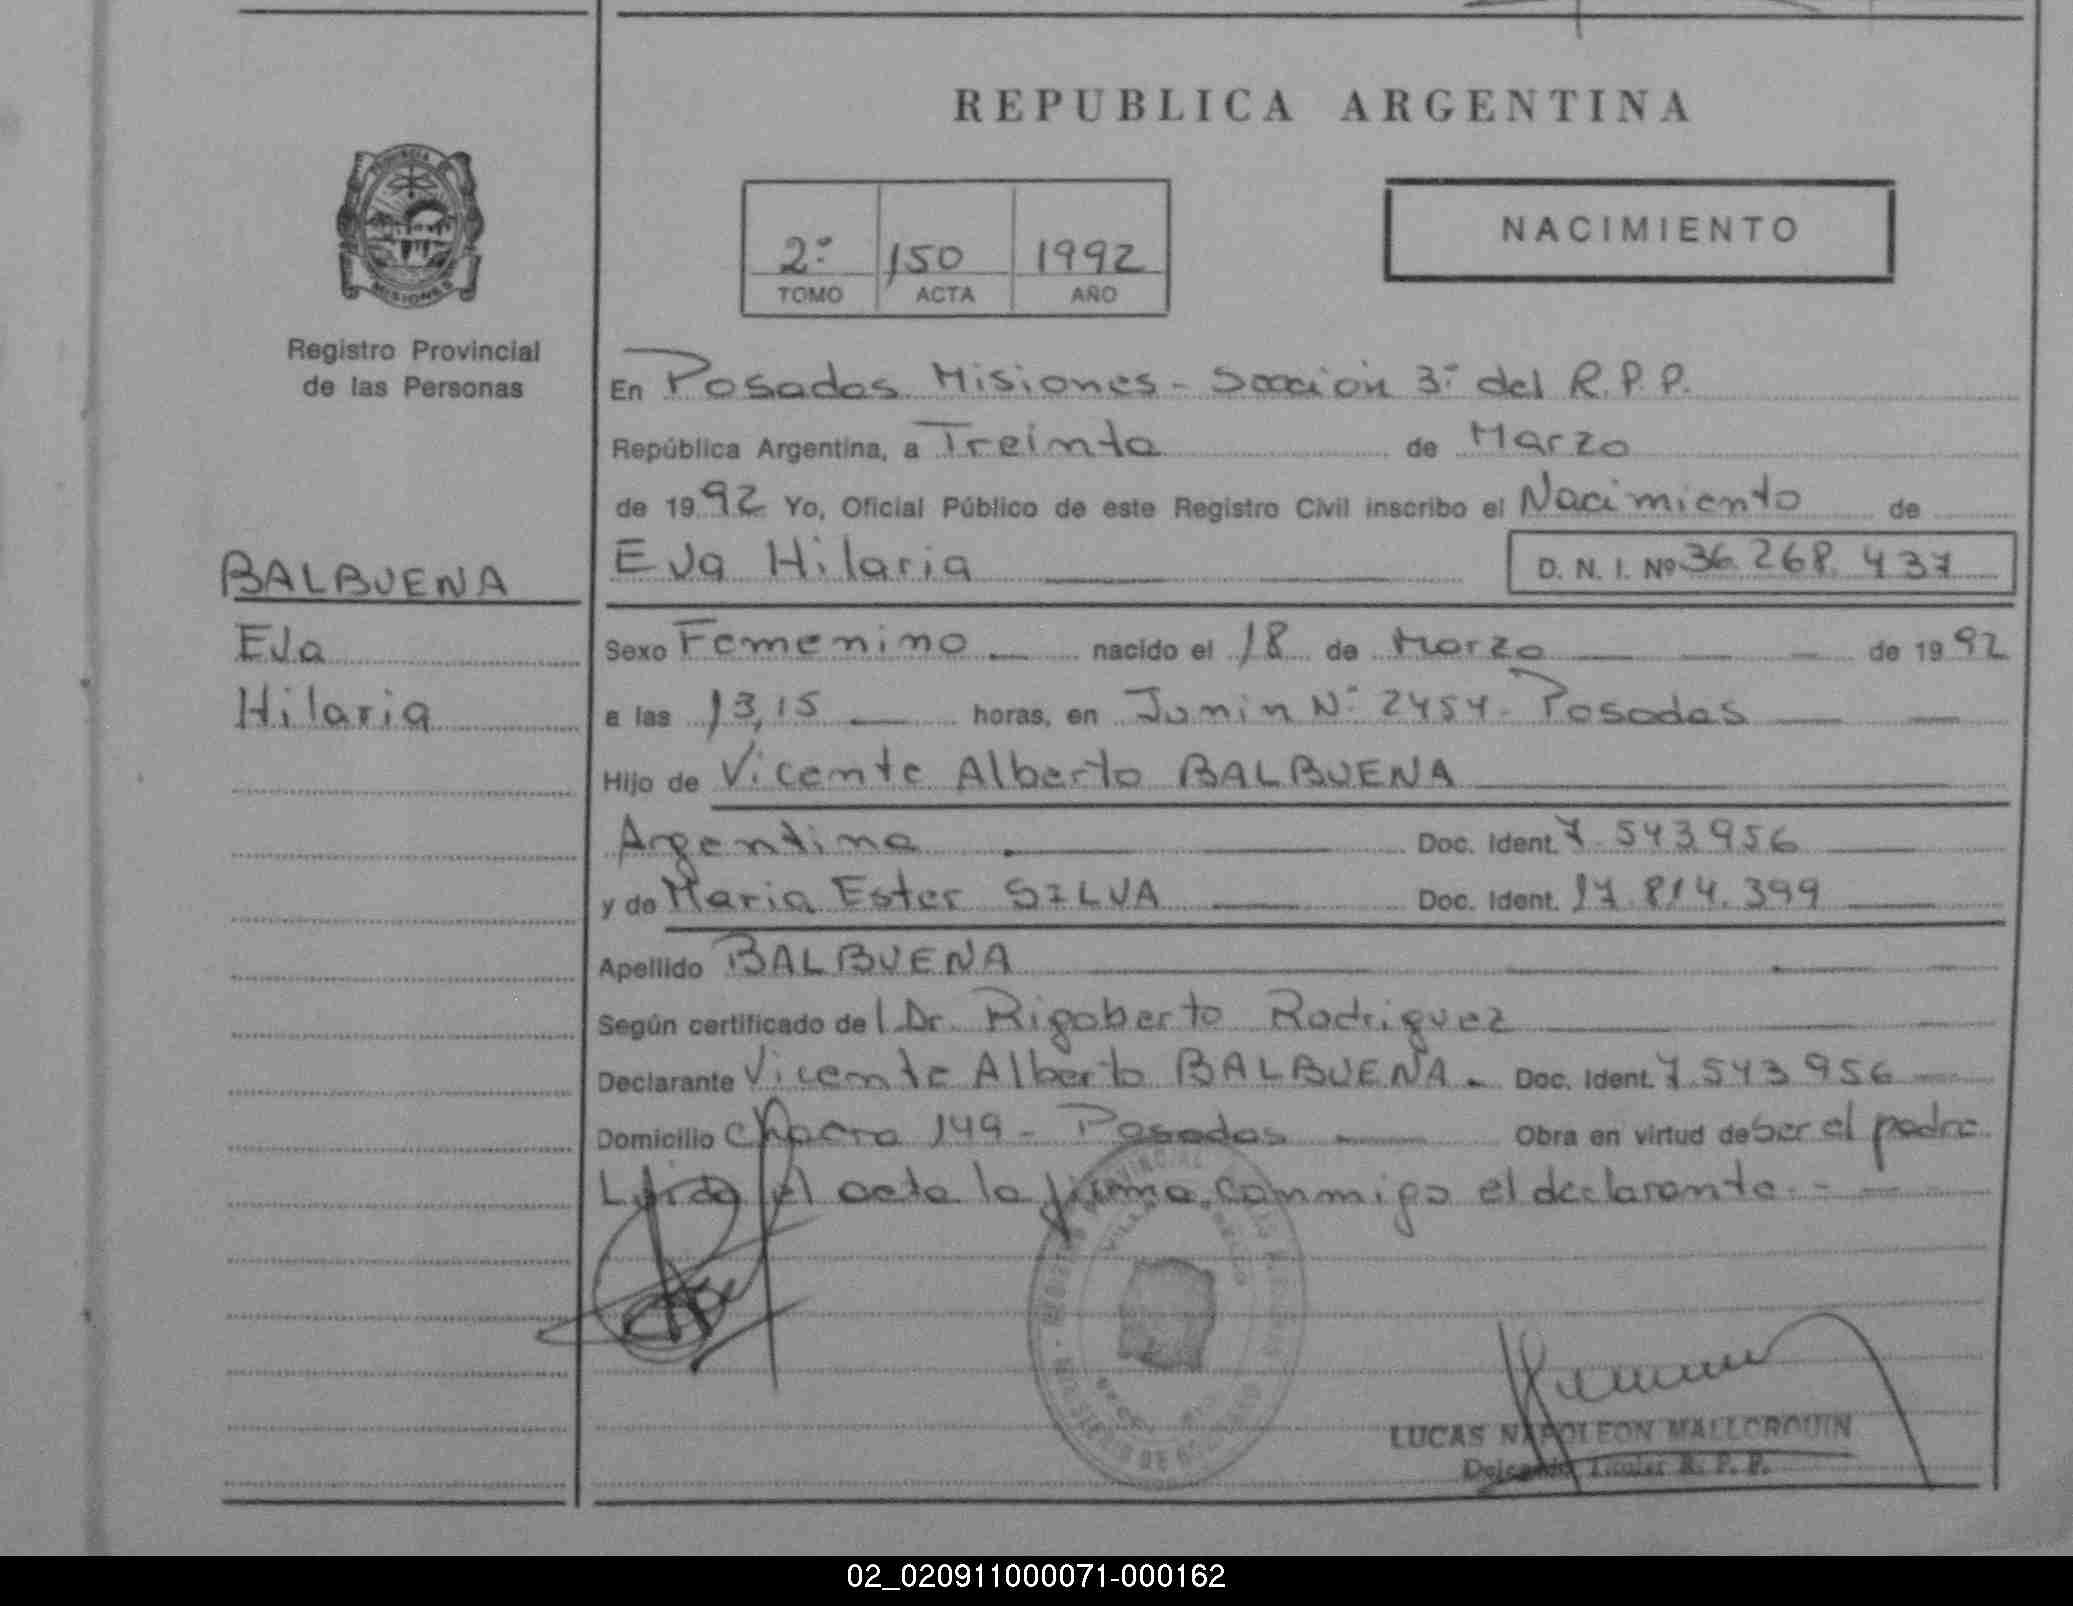 REPUBLICA ARGENTINA
PROVINCIA
MISIONES
Registro Provincial
de las Personas
2º 150 1992
TOMO ACTA AÑO
NACIMIENTO
BALBUENA
Eva
Hilaria
En Posadas Misiones - Sección 3º del R.P.P.
República Argentina, a Treinta de Marzo
de 1992 Yo, Oficial Público de este Registro Civil inscribo el Nacimiento de
Eva Hilaria D. N. I. Nº 36.268.437
Sexo Femenino nacido el 18 de Marzo de 1992
a las 13,15 horas, en Junin Nº 2454 - Posadas
Hijo de Vicente Alberto BALBUENA
Argentina Doc. Ident. 7.543.956
y de Maria Ester SILVA Doc. Ident. 17.814.399
Apellido BALBUENA
Según certificado del Dr. Rigoberto Rodriguez
Declarante Vicente Alberto BALBUENA. Doc. Ident. 7.543.956
Domicilio Chacra 149 - Posadas Obra en virtud de ser el padre.
Leida el acta la firma conmigo el declarante.-
LUCAS NAPOLEON MALLORQUIN
Delegado Titular R. P. P.
02_020911000071-000162